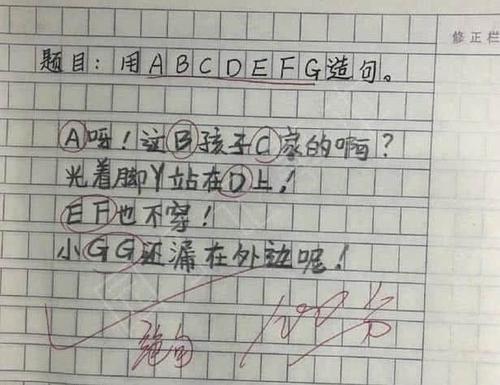 修正栏
题目：用ABCDEFG造句。
A呀！这B孩子C家的啊？
光着脚Y站在D上！
EF也不穿！
小GG还漏在外边呢！
绝句
100分